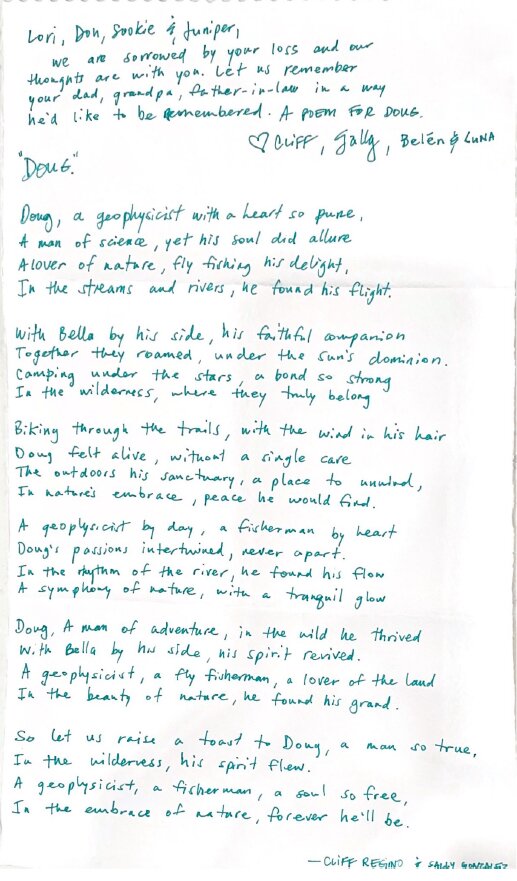 Lori, Don, Sookie & Juniper,
we are sorrowed by your loss and our
thoughts are with you. Let us remember
your dad, grandpa, father-in-law in a way
he'd like to be remembered. A POEM FOR DOUG.
♡ CLIFF, Sally, Belén & LUNA
"DOUG."
Doug, a geophysicist with a heart so pure,
A man of science, yet his soul did allure
A lover of nature, fly fishing his delight,
In the streams and rivers, he found his flight.
With Bella by his side, his faithful companion
Together they roamed, under the sun's dominion.
Camping under the stars, a bond so strong
In the wilderness, where they truly belong
Biking through the trails, with the wind in his hair
Doug felt alive, without a single care
The outdoors his sanctuary, a place to unwind,
In nature's embrace, peace he would find.
A geoplysicist by day, a fisherman by heart
Doug's passions intertwined, never apart.
In the rhythm of the river, he found his flow
A symphony of nature, with a tranquil glow
Doug, A man of adventure, in the wild he thrived
With Bella by his side, his spirit revived.
A geophysicist, a fly fisherman, a lover of the land
In the beauty of nature, he found his grand.
So let us raise a toast to Doug, a man so true,
In the wilderness, his spirit flew.
A geophysicist, a fisherman, a soul so free,
In the embrace of nature, forever he'll be.
—CLIFF REGINO & SALLY GONZALEZ